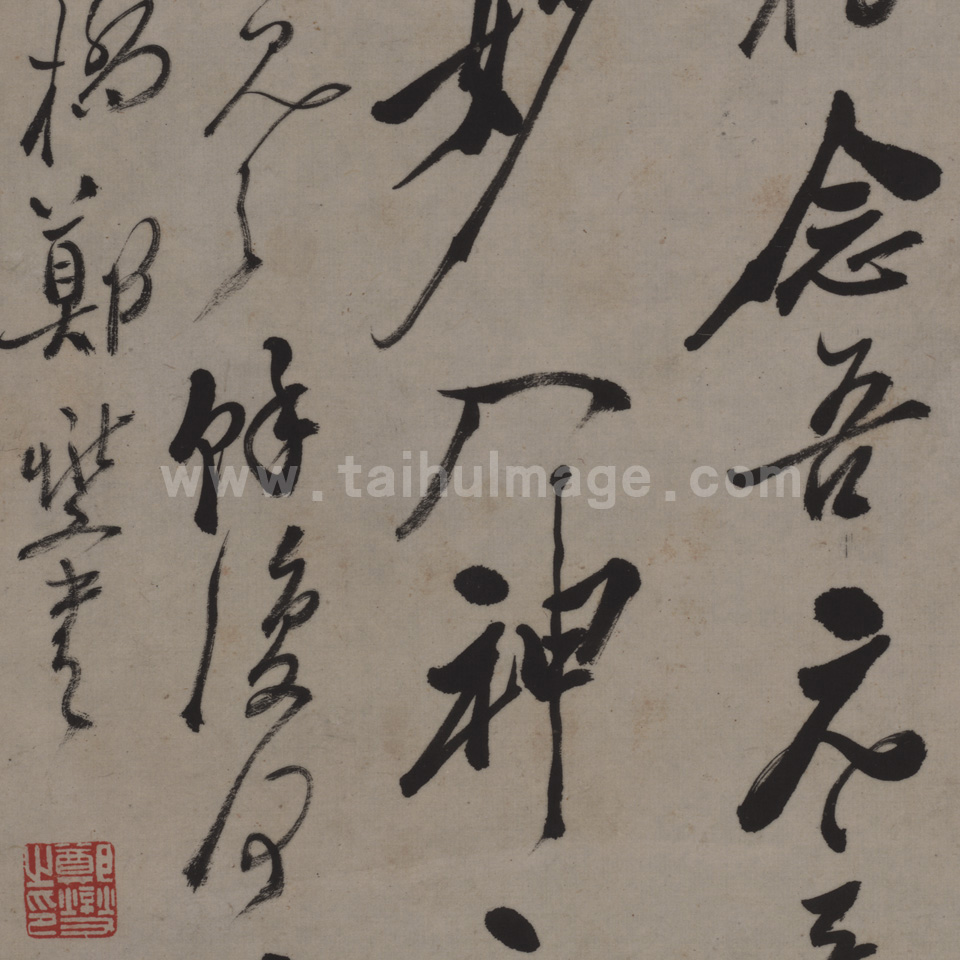 念吾
妙入神
餘復何
橋鄭燮書
鄭燮之印
www.taihuImage.com